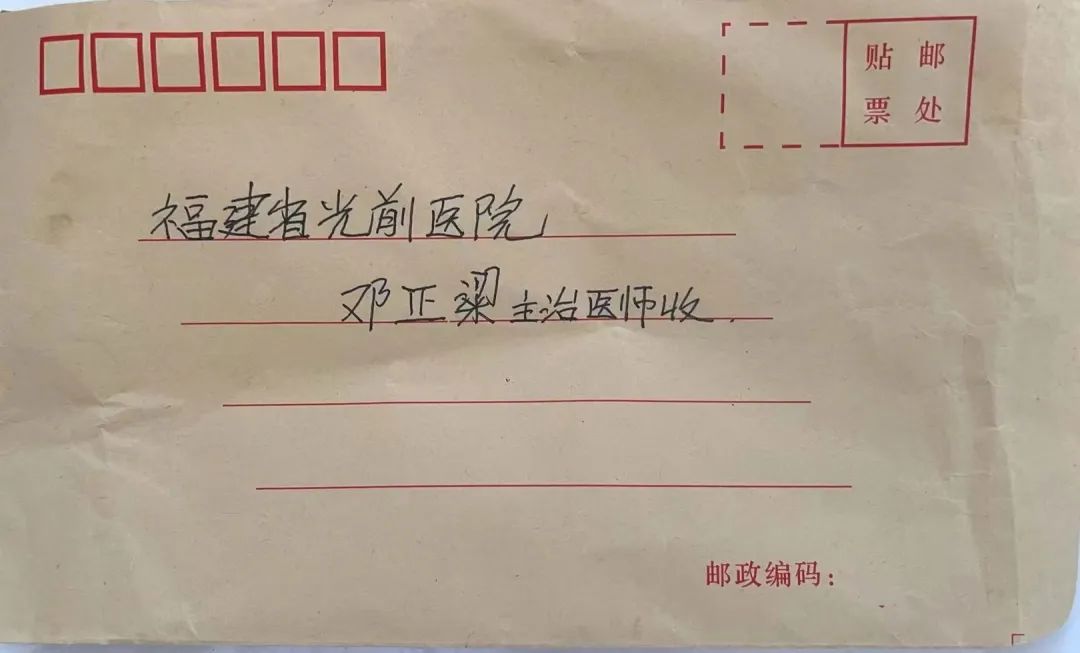 贴邮
票处
福建省光前医院
邓正梁主治医师收.
邮政编码：